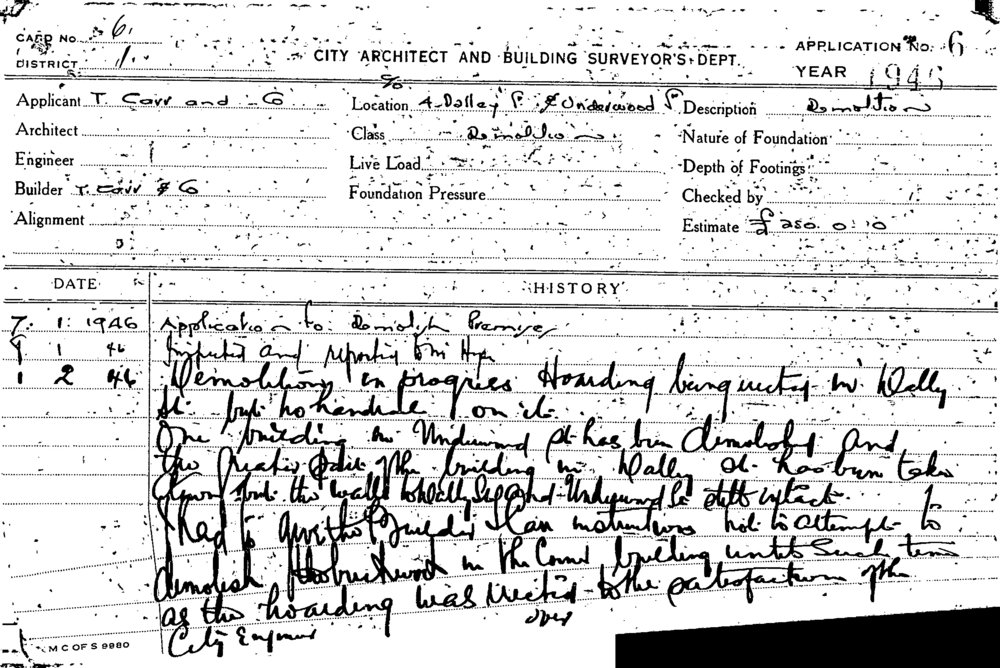 CARD NO. 6.
DISTRICT 1.
CITY ARCHITECT AND BUILDING SURVEYOR'S DEPT.
APPLICATION No. 6
YEAR 1946
Applicant T. Carr and Co
Architect
Engineer
Builder T. Carr & Co
Alignment
c/o
Location Dalley St & Underwood St
Class Demolition
Live Load
Foundation Pressure
Description Demolition
Nature of Foundation
Depth of Footings
Checked by
Estimate £ 250. 0. 0
DATE HISTORY
7. 1. 1946 Application to Demolish Premises
9 1 46 Inspected and reported to Mr
1 2 46 Demolitions in progress Hoarding being erected in Dally
St. but no handrail on it.
One building in Underwood St has been demolished and
the greater part of the building in Dally St has been taken
down but the walls to Dally St and Underwood St still intact.
I had to give the Builder instructions not to attempt to
demolish the brickwork in the Corner building until such time
as the hoarding was erected to the satisfaction of the
City Engineer
over
M C OF S 9980